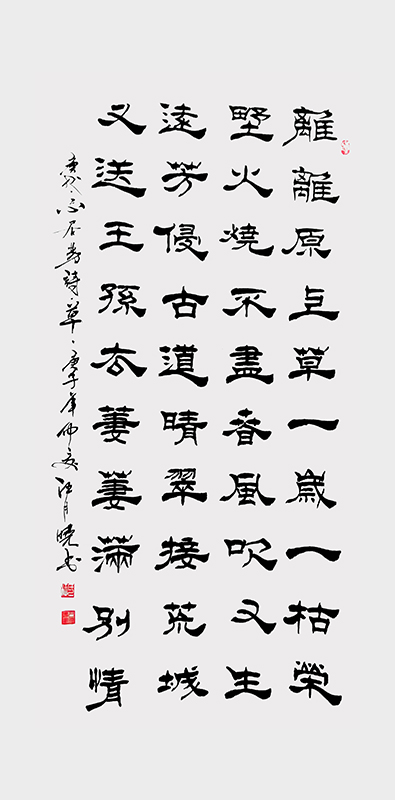 離離原上草一歲一枯榮
野火燒不盡春風吹又生
遠芳侵古道晴翠接荒城
又送王孫去萋萋滿別情
唐代·白居易詩·草·庚子年仲夏江月曉书